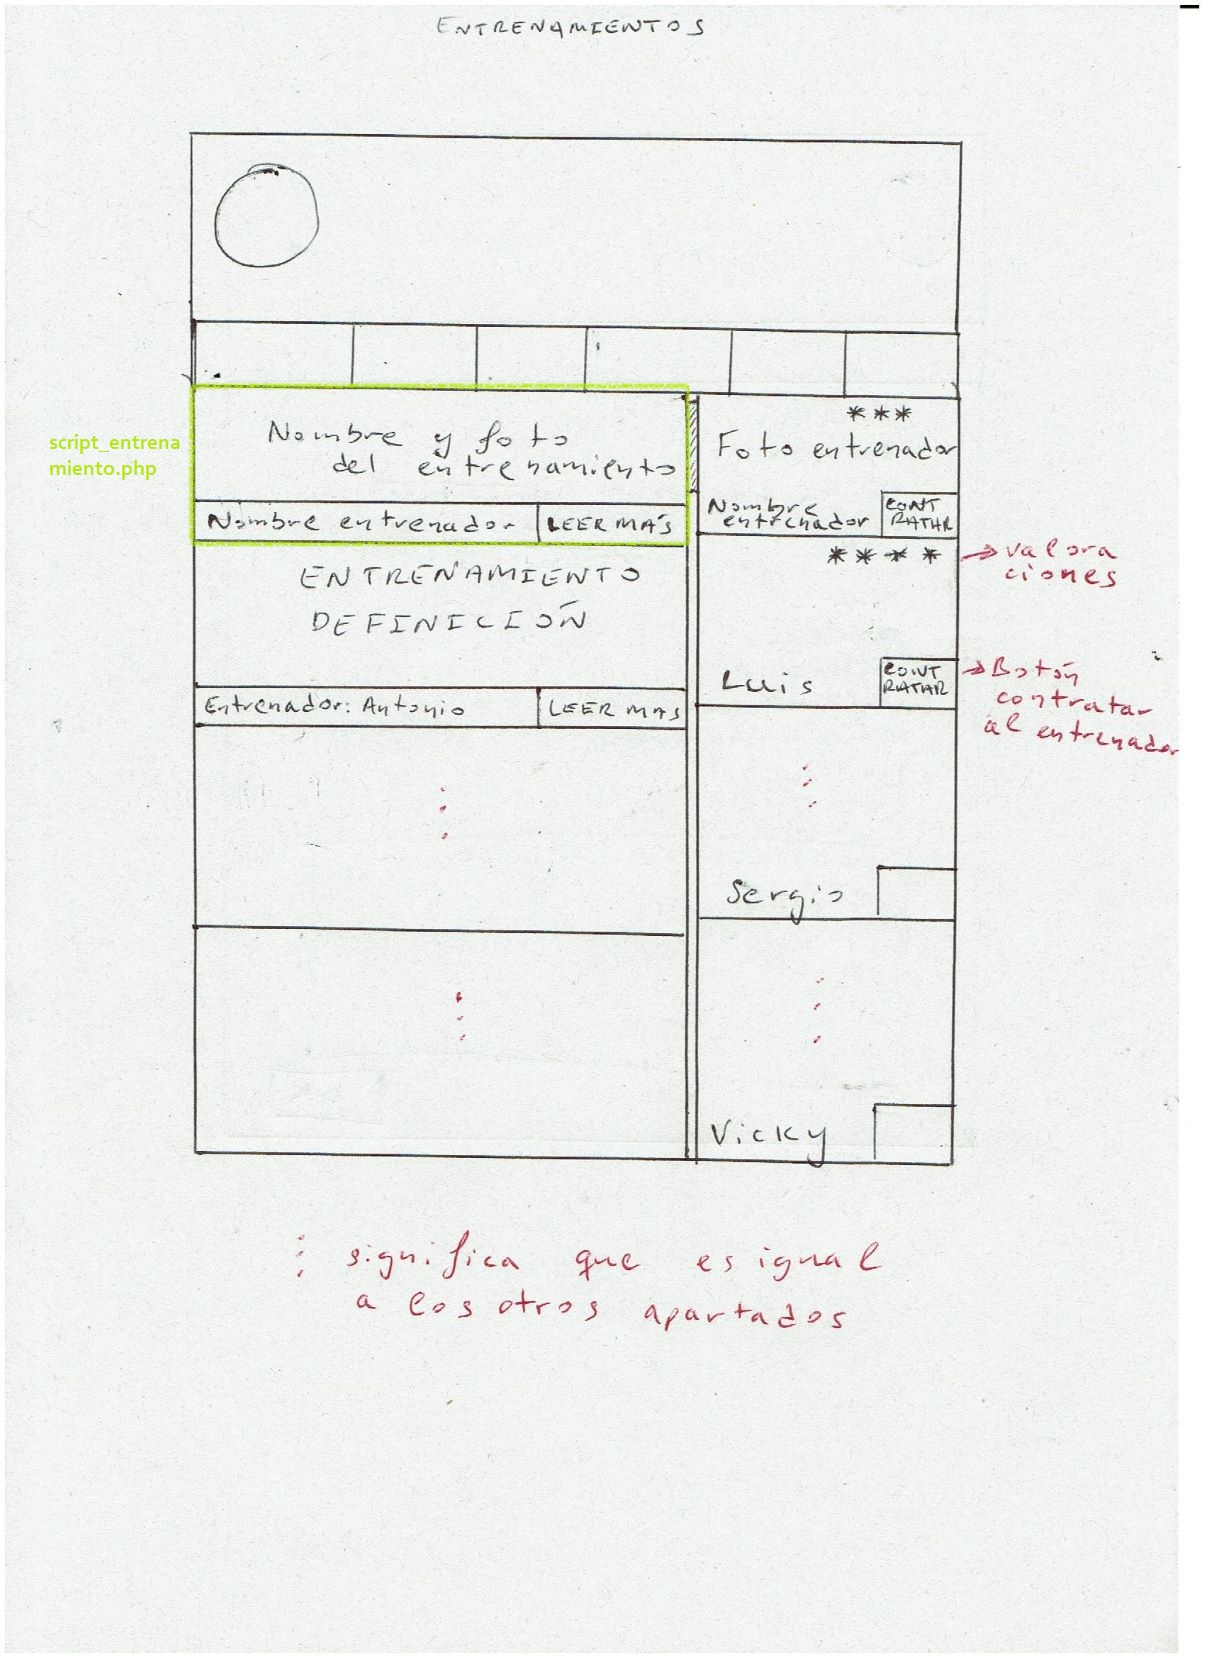 ENTRENAMIENTOS
script_entrena
miento.php
Nombre y foto
del entrenamiento
Nombre entrenador
LEER MÁS
***
Foto entrenador
Nombre
entrenador
CONT
RATAR
ENTRENAMIENTO
DEFINICIÓN
Entrenador: Antonio
LEER MAS
****
→ valora
ciones
Luis
CONT
RATAR
→ Botón
contratar
al entrenador
Sergio
Vicky
⋮ significa que es igual
a los otros apartados